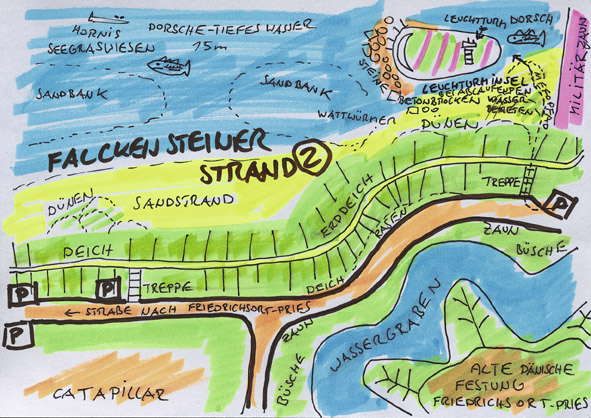 HORNIS
SEEGRASWIESEN
DORSCHE-TIEFES WASSER
15m
LEUCHTTURM
DORSCH
MILITÄRZAUN
SANDBANK
SANDBANK
STEINE
LEUCHTURMINSEL
BEI ABLAUFENDEN
WASSER
BETRETEN
BETONBROCKEN
WATTWÜRMER
DÜNEN
FALCKENSTEINER
STRAND 2
TREPPE
P
DÜNEN
SANDSTRAND
ERDDEICH
RASEN
ZAUN
BÜSCHE
DEICH
TREPPE
DEICH
P
P
← STRAßE NACH FRIEDRICHSORT-PRIES
P
ZAUN
BÜSCHE
WASSERGRABEN
CATAPILLAR
ALTE DÄNISCHE
FESTUNG
FRIEDRICHSORT-PRIES